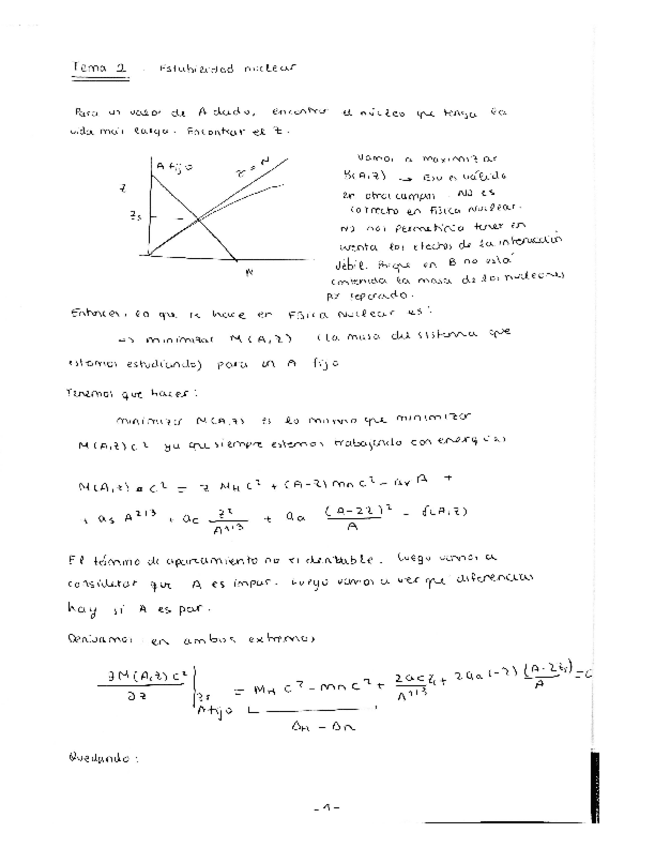 Tema 2 . Estabilidad nuclear
Para un valor de A dado, encontrar el núcleo que tenga la
vida más larga. Encontrar el Z.
A fijo
Z = N
Z
Zs
N
Vamos a maximizar
B(A,Z) → Eso es válido
en otros campos. No es
correcto en Física Nuclear.
No nos permetiría tener en
cuenta los efectos de la interacción
débil. Porque en B no está
contenida la masa de los nucleones
por separado.
Entonces, lo que se hace en Física Nuclear es:
=> minimizar M(A,Z) (la masa del sistema que
estamos estudiando) para un A fijo
Tenemos que hacer:
minimizar M(A,Z) es lo mismo que minimizar
M(A,Z)c² ya que siempre estamos trabajando con energías
M(A,Z) c² = Z M_H c² + (A-Z) m_n c² - a_v A +
+ a_s A^{2/3} + a_c Z²/A^{1/3} + a_a (A-2Z)²/A - δ(A,Z)
El término de apareamiento no es derivable. Luego vamos a
considerar que A es impar. Luego vamos a ver que diferencias
hay si A es par.
Derivamos en ambos extremos
∂M(A,Z)c²/∂Z |_{Zs, A fijo} = M_H c² - m_n c² + 2a_c Zs/A^{1/3} + 2a_a(-2) (A-2Zs)/A = 0
Δ_H - Δ_n
Quedando:
- 1 -